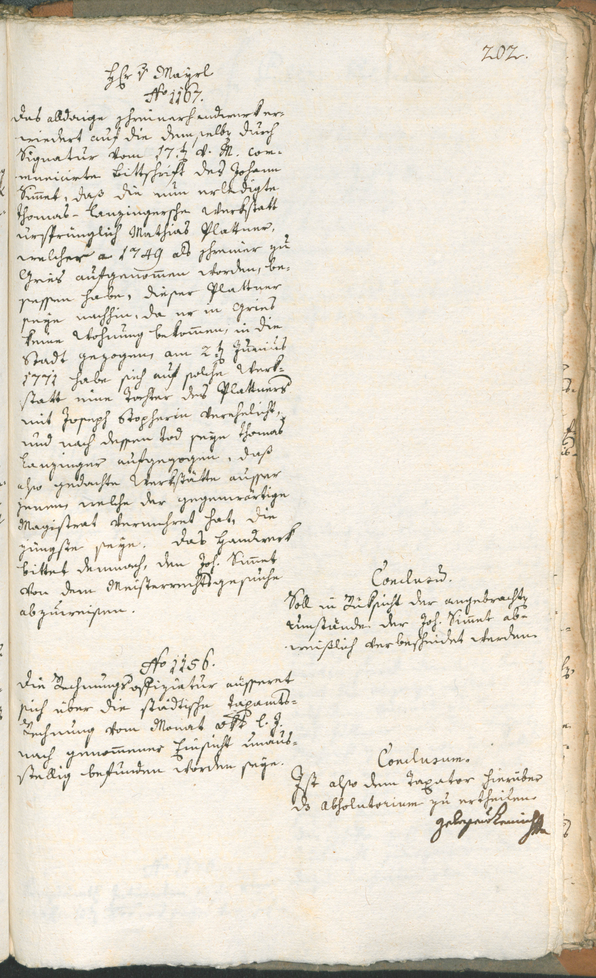 202.
H: v: Mayrl
No 1167.
Das alldaige Schreinerhandwerk er-
wiedert auf die demselbe durch
Signatur vom 17. v. M. com-
municirte Bittschrift des Johann
Simet, daß die nun erledigte
Thomas-Lanzingersche Werkstatt
ursprünglich Mathias Plattner,
welcher a 1749 als Schreiner zu
Gries aufgenommen worden, be-
sessen habe, dieser Plattner
seye nachhin, da er in Gries
keine Wohnung bekommen, in die
Stadt gezogen, am 2t Junius
1771 habe sich auf solche Werk-
statt eine Tochter des Plattners
mit Joseph verehelicht,
und nach dessen Tod seye Thomas
Lanzinger aufgezogen, daß
also gedachte Werkstätte ausser
jenen, welche der gegenwärtige
Magistrat vermehret hat, die
jüngste seye. Das Handwerk
bittet demnach, den Joh. Simet
von dem Meisterrechtsgesuche
abzuweisen.
Conclusū.
Soll in Rüksicht der angebrachte
Umstände der Joh. Simet ab-
weislich verbescheidet werden
No 1156.
Die Rechnungsoffiziatur äusseret
sich über die städtische Taxamts-
Rechnung vom Monat l. J.
nach genommener Einsicht unaus-
stellig befunden worden seye.
Conclusum.
Ist also dem Taxator hierüber
ds Absolutorium zu ertheilen